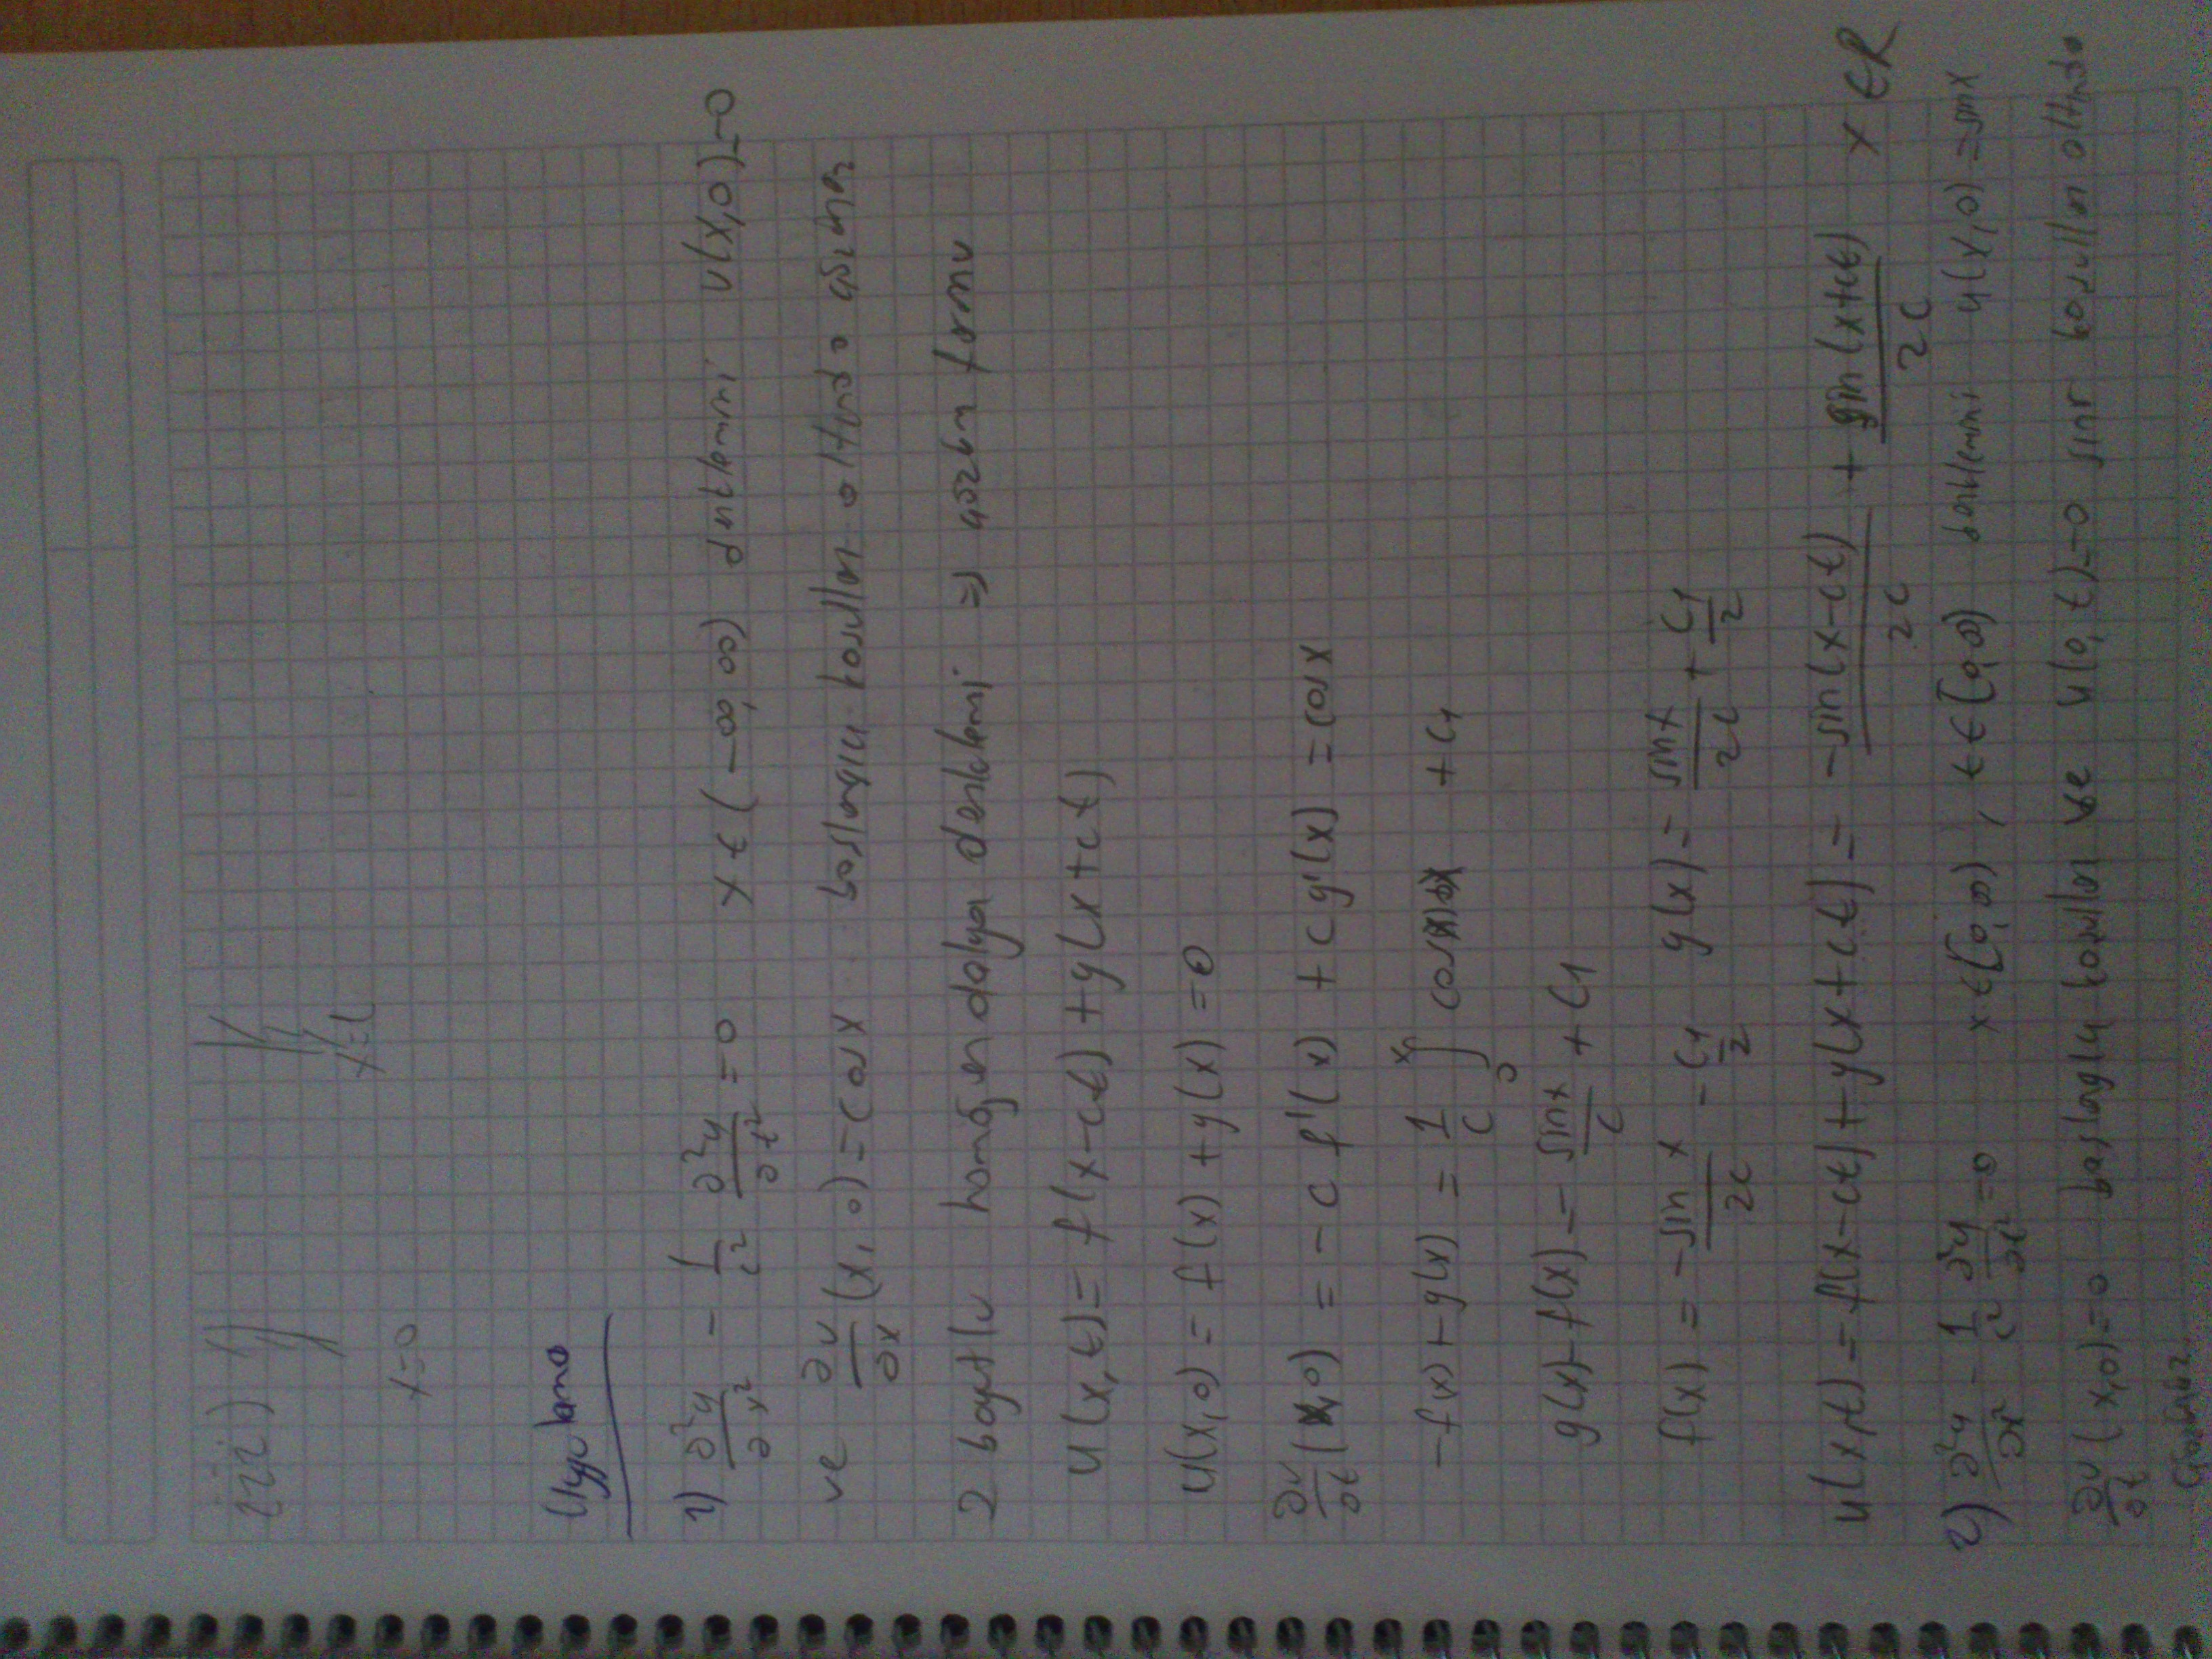 iii)
x=l
x=0
Uygulama
1) ∂²u/∂x² - 1/c² ∂²u/∂t² = 0 x ∈ (-∞,∞) denklemini u(x,0)=0
ve ∂u/∂x (x,0)=cosx başlangıç koşulları altında çözünüz
2 boyutlu homojen dalga denklemi => çözüm formu
u(x,t)= f(x-ct)+g(x+ct)
u(x,0) = f(x) +g(x) =0
∂u/∂t (x,0) = -c f'(x) + cg'(x) = cosx
-f(x)+g(x) = 1/c ∫₀ˣ cos(x)dx + c₁
g(x)-f(x) = sinx/c + c₁
f(x) = -sin x/2c - c₁/2 g(x) = sinx/2c + c₁/2
u(x,t) = f(x-ct)+g(x+ct) = -sin(x-ct)/2c + sin(x+ct)/2c x ∈R
2) ∂²u/∂x² - 1/c² ∂²u/∂t² =0 x ∈[0,∞) , t ∈[0,∞) denklemini u(x,0) = sinx
∂u/∂t (x,0)=0 başlangıç koşulları ve u(0,t)=0 sınır koşulları altında
çözünüz.